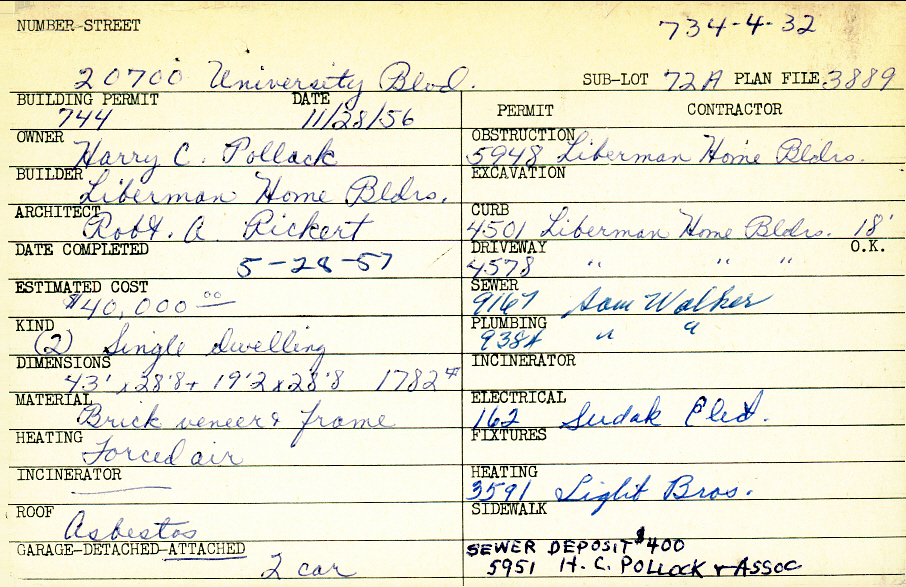 NUMBER-STREET 734-4-32
20700 University Blvd. SUB-LOT 72A PLAN FILE 3889
BUILDING PERMIT DATE PERMIT CONTRACTOR
744 11/28/56
OWNER OBSTRUCTION
Harry C. Pollack 5948 Liberman Home Bldrs.
BUILDER EXCAVATION
Liberman Home Bldrs.
ARCHITECT CURB
Robt. A. Rickert 4501 Liberman Home Bldrs. 18'
DATE COMPLETED DRIVEWAY O.K.
5-28-57 4578 " " "
ESTIMATED COST SEWER
$40,000.00 9167 Sam Walker
KIND PLUMBING
(2) Single dwelling 938A " "
DIMENSIONS INCINERATOR
43' x 28'8 + 19'2 x 28'8 1782#
MATERIAL ELECTRICAL
Brick veneer & frame 162 Sudak Elect.
HEATING FIXTURES
Forced air
INCINERATOR HEATING
3591 Light Bros.
ROOF SIDEWALK
Asbestos
GARAGE-DETACHED-ATTACHED SEWER DEPOSIT $400
2 car 5951 H. C. POLLOCK & ASSOC